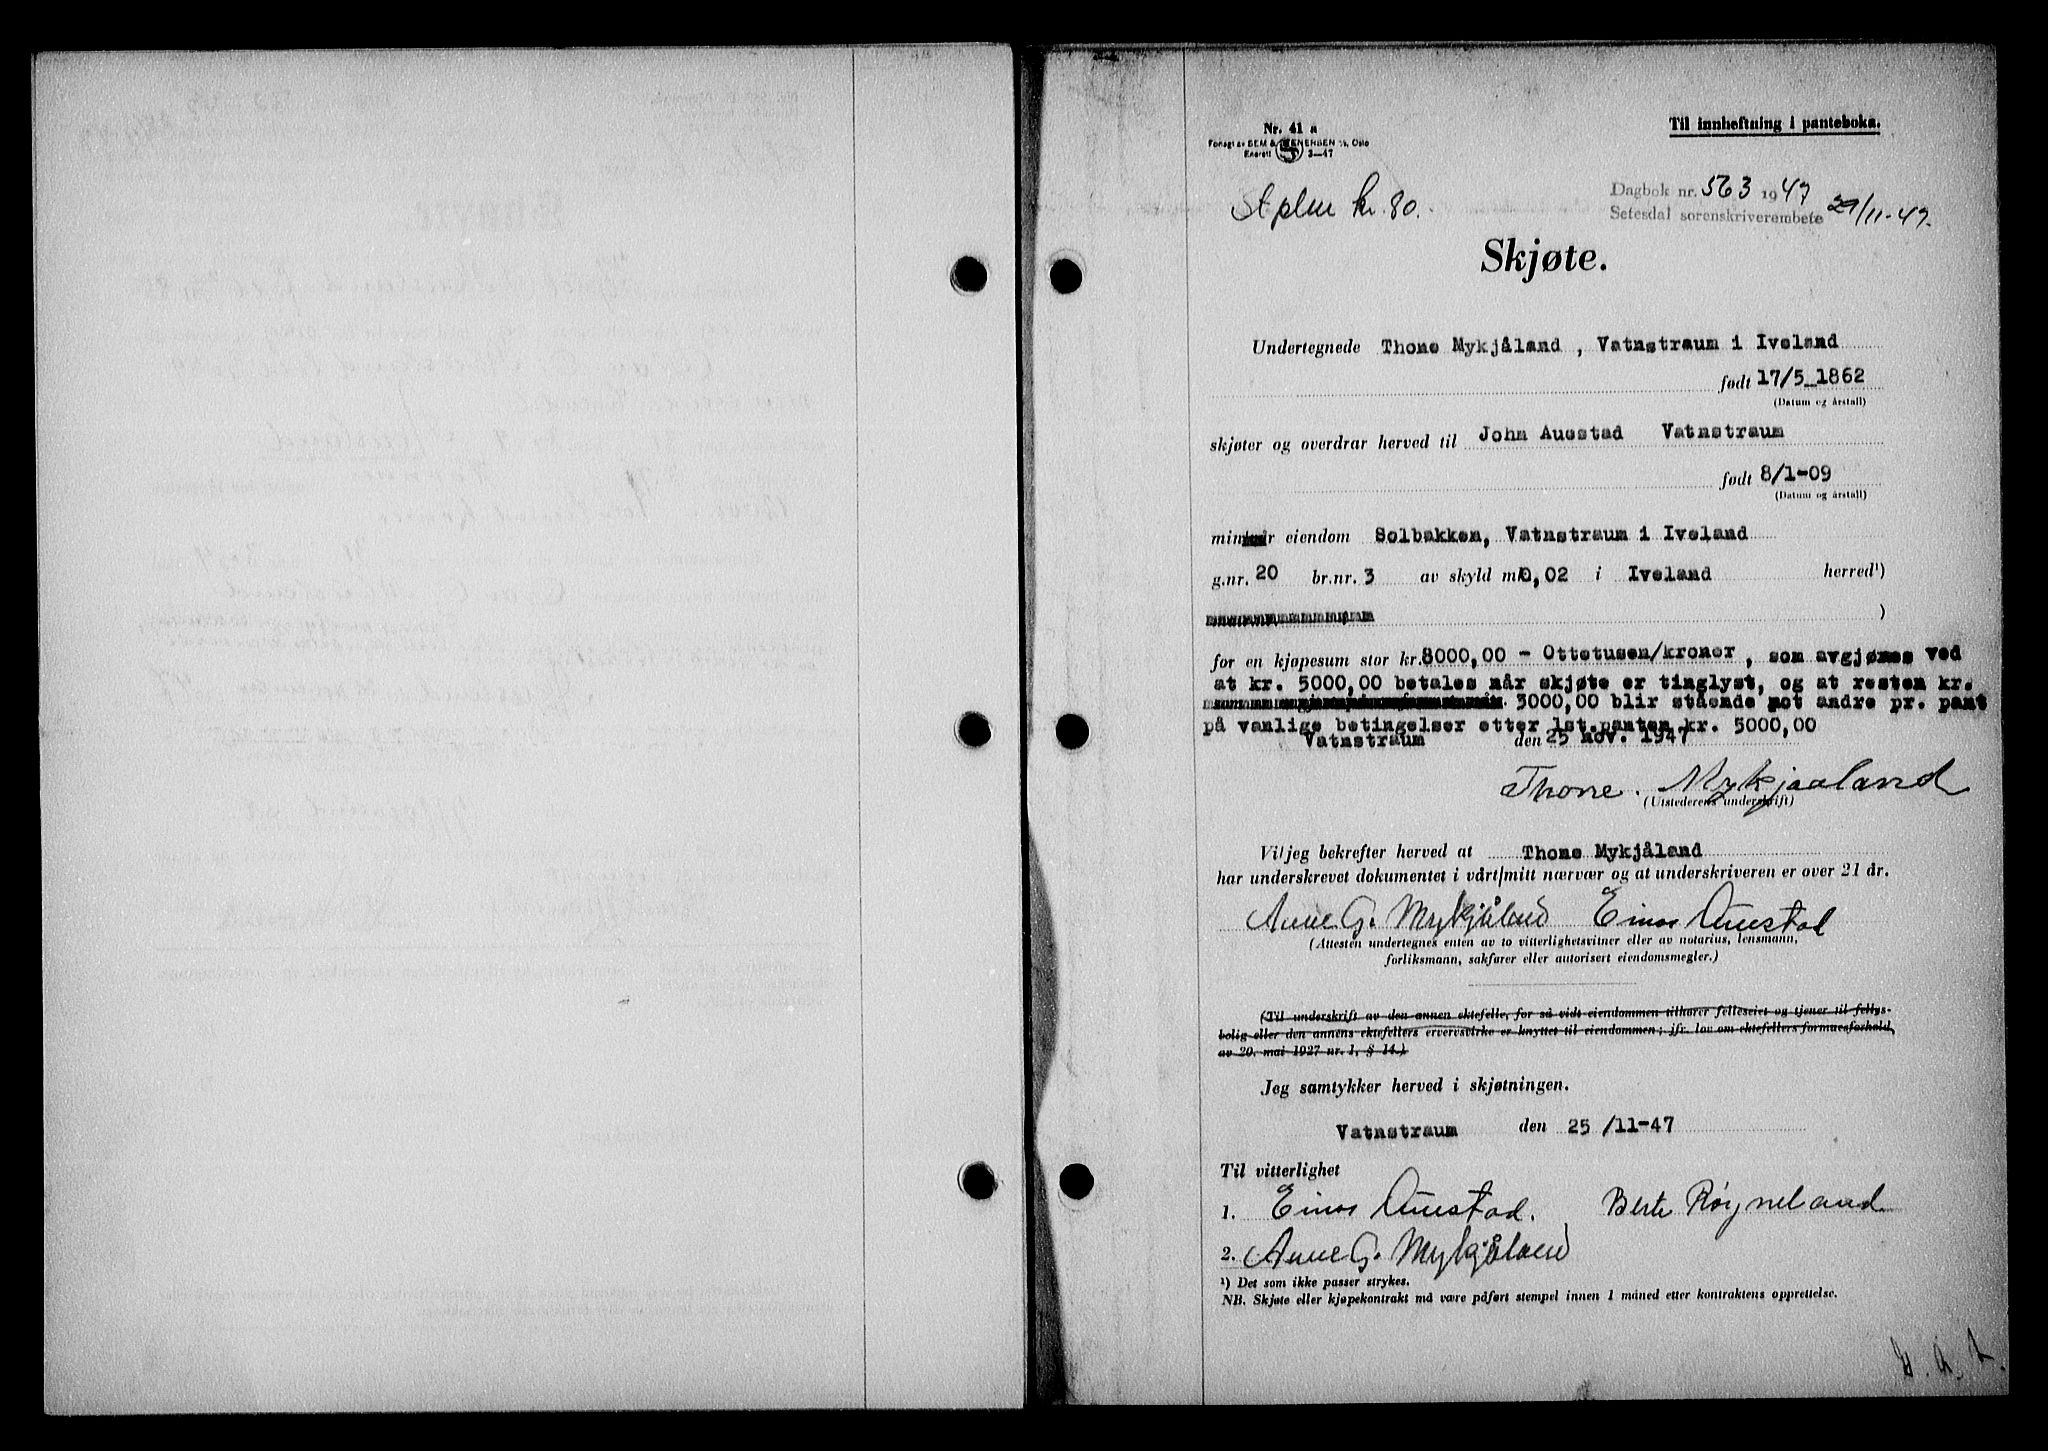 Til innheftning i panteboka.
Nr. 41 a
Forlagt av SEM & STENERSEN A/S, Oslo
Enerett 3—47
Dagbok nr. 563 1947
Setesdal sorenskriverembete 29/11-47.
Stplm kr. 80.
Skjøte.
Undertegnede Thone Mykjåland, Vatnstraum i Iveland
født 17/5_1862
(Datum og årstall)
skjøter og overdrar herved til John Austad Vatnstraum
født 8/1-09
(Datum og årstall)
min eiendom Solbakken, Vatnstraum i Iveland
g.nr. 20 br.nr. 3 av skyld mk 0,02 i Iveland herred¹)
)
for en kjøpesum stor kr. 8000,00 - Ottetusen/kroner, som avgjøres ved
at kr. 5000,00 betales når skjøte er tinglyst, og at resten kr.
3000,00 blir stående mot andre pr. pant
på vanlige betingelser etter 1st.panten kr. 5000,00
Vatnstraum den 25 nov. 1947
Thone. Mykjaaland
(Utstederens underskrift)
Vi/jeg bekrefter herved at Thone Mykjåland
har underskrevet dokumentet i vårt/mitt nærvær og at underskriveren er over 21 år.
Anne G. Mykjåland Einar Austad
(Attesten undertegnes enten av to vitterlighetsvitner eller av notarius, lensmann,
forliksmann, sakfører eller autorisert eiendomsmegler.)
(Til underskrift av den annen ektefelle, for så vidt eiendommen tilhører felleseiet og tjener til felles-
bolig eller den annens ektefellers ervervsvirke er knyttet til eiendommen; jfr. lov om ektefellers formuesforhold,
av 20. mai 1927 nr. 1, § 14.)
Jeg samtykker herved i skjøtningen.
Vatnstraum den 25 /11-47
Til vitterlighet
1. Einar Austad. Berte Røyneland
2. Anne G. Mykjåland
¹) Det som ikke passer strykes.
NB. Skjøte eller kjøpekontrakt må være påført stempel innen 1 måned etter kontraktens opprettelse.